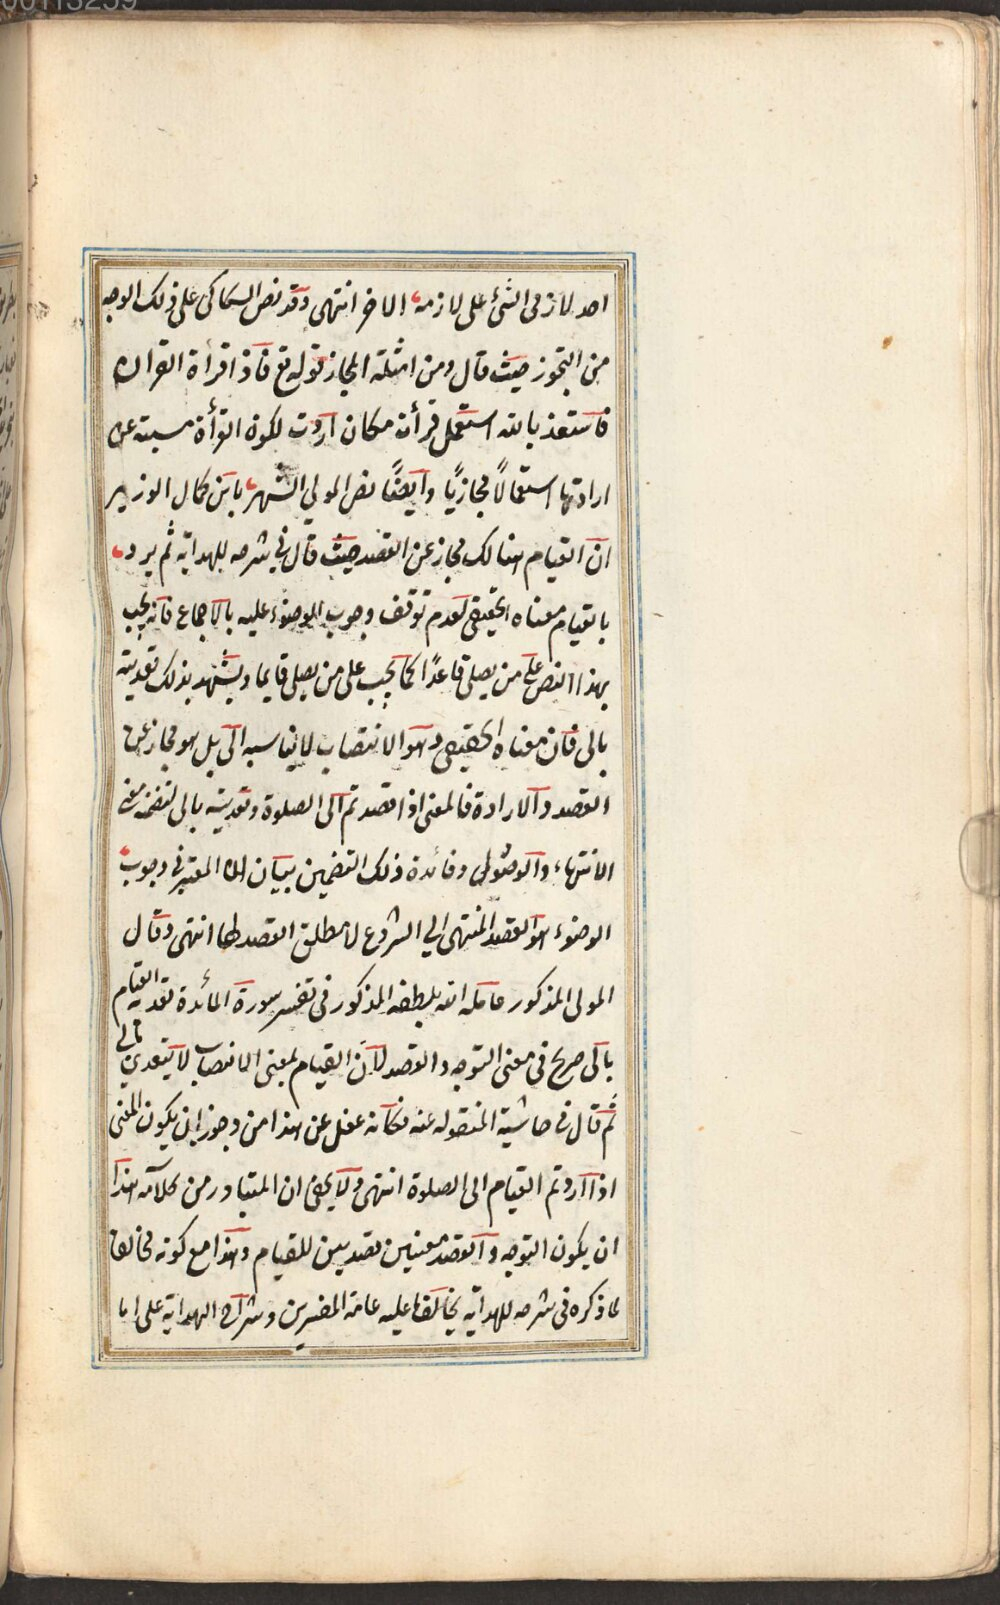 00113259
احد لازمى الشئ على لازمه الاخر انتهى وقد نص السكاكى على ذلك الوجه
من التجوز حيث قال ومن امثلة المجاز قوله تع فاذا قرأة القران
فاستعذ بالله استعمل قرأت مكان اردت لكون القرأة مسببة عن
ارادتها استعمالاً مجازيًا وايضًا نص المولى الشهير بابن كمال الوزير
ان القيام هنالك مجاز عن القصد حيث قال فى شرحه للهداية ثم يرد
بالقيام معناه الحقيقى لعدم توقف وجوب الوضوء عليه بالاجماع فانه يجب
بهذا النص على من يصلى قاعدًا كما يجب على من يصلى قايما ويشهد بذلك تعديته
بالى فان معناه الحقيقى وهو الانتصاب لا يناسبه الى بل هو مجاز عن
القصد والارادة فالمعنى اذا قصدتم الى الصلوة وتعديته بالى لتضمنه معنى
الانتهاء والوصول وفائدة ذلك التضمين بيان ان المعتبر فى وجوب
الوضوء هو القصد المنتهى الى الشروع لا مطلق القصد انتهى وقال
المولى المذكور عامله الله بلطفه المذكور فى تفسير سورة المائدة تعدية القيام
بالى صريح فى معنى التوجه والقصد لان القيام بمعنى الانتصاب لا يتعدى بالى
ثم قال فى حاشية المنقوله عنه فكانه غفل عن هذا من وجوز ان يكون المعنى
اذا اردتم القيام الى الصلوة انتهى ولا يخفى ان المتبادر من كلامه هذا
ان يكون التوجه والقصد معنيين قصديين للقيام وهذا مع كونه مخالفا
لما ذكره فى شرحه للهداية يخالفها عليه عامة المفسرين وشراح الهداية على ان